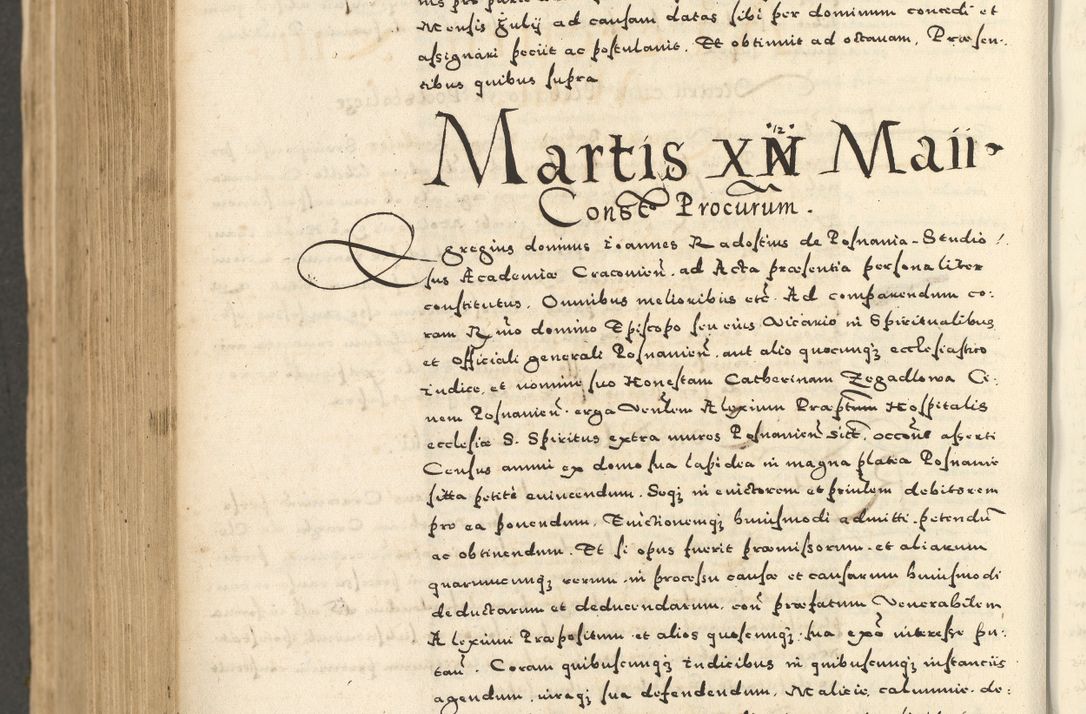 Mensis Julij ad causam datas sibi per dominum concedi et
assignari petiit ac postulauit. Et obtinuit ad octauam. Præsen-
tibus quibus supra
Martis XII Maii
12
Constō Procurum.
Egregius dominus Ioannes Radostius de Posnania Studio
sus Academiæ Cracouien̄. ad Acta præsentia personaliter
constitutus. Omnibus melioribus etc̄. Ad comparendum co:
ram R mo domino Episcopo seu eius Vicario in Spiritualibus
et Officiali generali Posnanien̄. aut alio quocunqz ecclesiastico
Iudice, et nomine suo Honestam Catherinam Zegadlowa Ci:
uem Posnanien̄. erga Venlem Alexium Præptum Hospitalis
ecclesiæ S. Spiritus extra muros Posnanien̄ sitt. occōne asserti
Census annui ex domo sua lapidea in magna platea Posnanie
sitta petiti euincendum. Seqz in euictorem et prinlem debitorem
pro ea ponendum. Euictionemqz huiusmodi admitti petendū
ac obtinendum. Et si opus fuerit præmissorum et aliarum
quarumcunqz rerum in processu causæ et causarum huiusmodi
deductarum et deducendarum. con̄ præfatum Venerabilem
Alexium Præpositum et alios quoscunqz sua exō interesse pu:
tan̄. Coram quibuscunqz Iudicibus in quibuscunqz instanciis
agendum, iuraqz sua defendendum. Malicie, calumnie de: